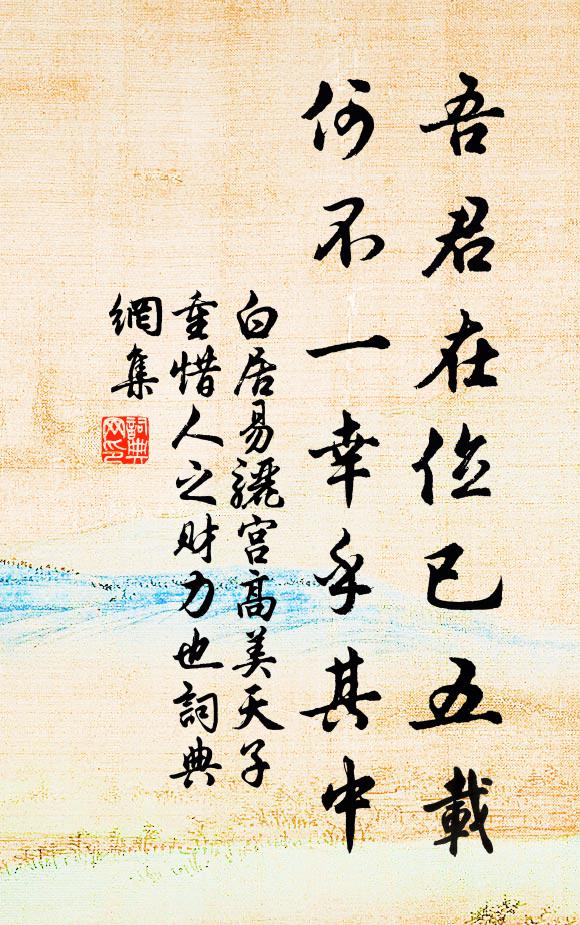 吾君在位已五載
何不一幸乎其中
白居易驪宮高美天子
重惜人之財力也詞典
網集
詞典
网印